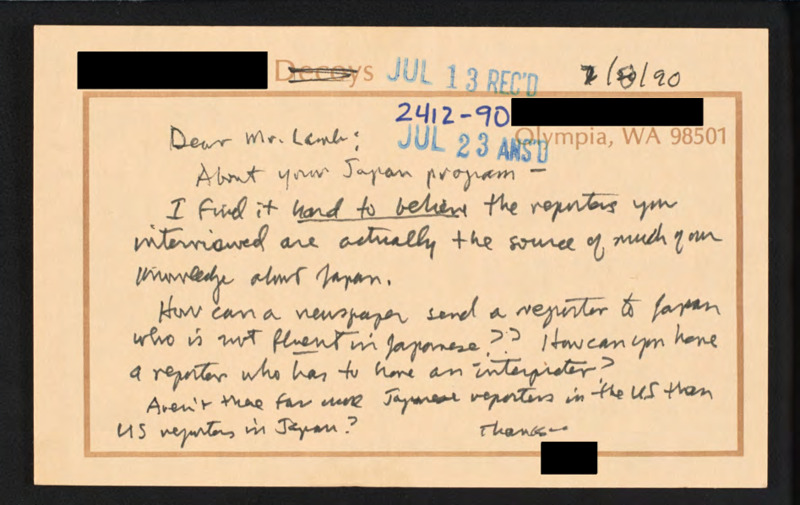 Decoys JUL 13 REC'D 7/8/90
2412-90
JUL 23 ANS'D Olympia, WA 98501
Dear Mr. Lamb:
About your Japan program —
I find it hard to believe the reporters you
interviewed are actually the source of much of our
knowledge about Japan.
How can a newspaper send a reporter to Japan
who is not fluent in Japanese?? How can you have
a reporter who has to have an interpreter?
Aren't there far more Japanese reporters in the US than
US reporters in Japan? Thanks—